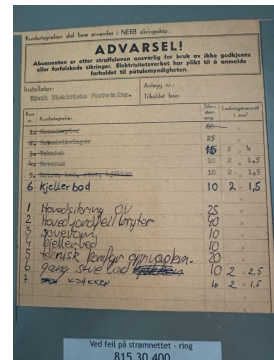 Kursfortegnelsen skal bare anvendes i NEBB sikringsskap.
ADVARSEL!
Abonnenten er etter straffeloven ansvarlig for bruk av ikke godkjente
eller forfalskede sikringer. Elektrisitetsverket har plikt til å anmelde
forholdet til påtalemyndigheten.
Installatør: Anlegg nr.:
Elektriske Forretning. Tilkoblet fase:
Kurs nr. Kursfortegnelse: Ledningstverrsnitt i mm²
1. 60
2. 25
3. 15 2 × 4
4. 10 2 × 1,5
5. 10 2 × 1,5
6 Kjellerbod 10 2 × 1,5
1 Hovedsikring OV 25
2 Hoved jordfeil bryter 40
3 soverom 10
4 Kjellerbod 10
5 20
6 gang stue bad 10 2 × 2,5
7 KJØKKEN 10 2 × 1,5
Ved feil på strømnettet - ring
815 30 400